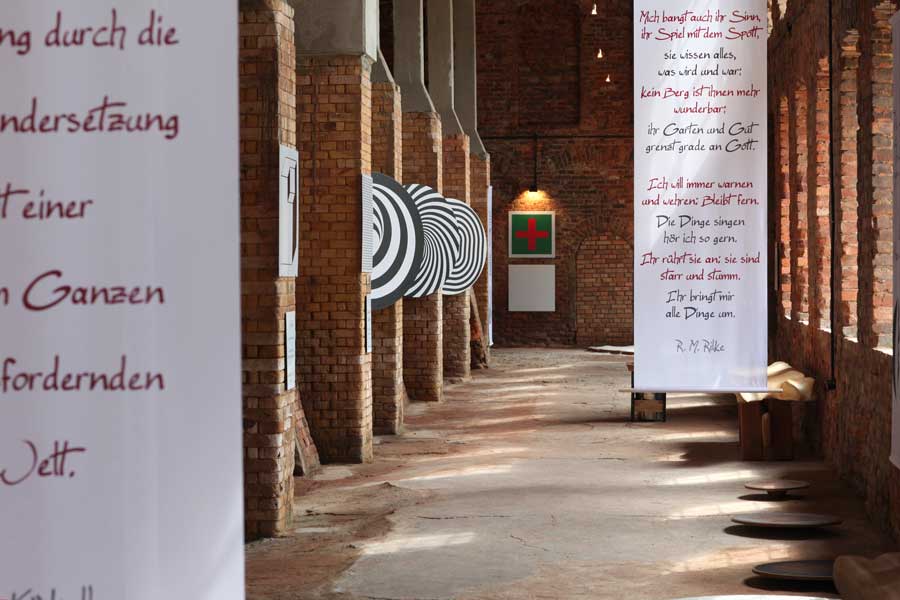 ng durch die
ndersetzung
t einer
n Ganzen
fordernden
Welt.
Mich bangt auch ihr Sinn,
ihr Spiel mit dem Spott,
sie wissen alles,
was wird und war;
kein Berg ist ihnen mehr
wunderbar;
ihr Garten und Gut
grenzt grade an Gott.
Ich will immer warnen
und wehren: Bleibt fern.
Die Dinge singen
hör ich so gern.
Ihr rührt sie an: sie sind
starr und stumm.
Ihr bringt mir
alle Dinge um.
R. M. Rilke